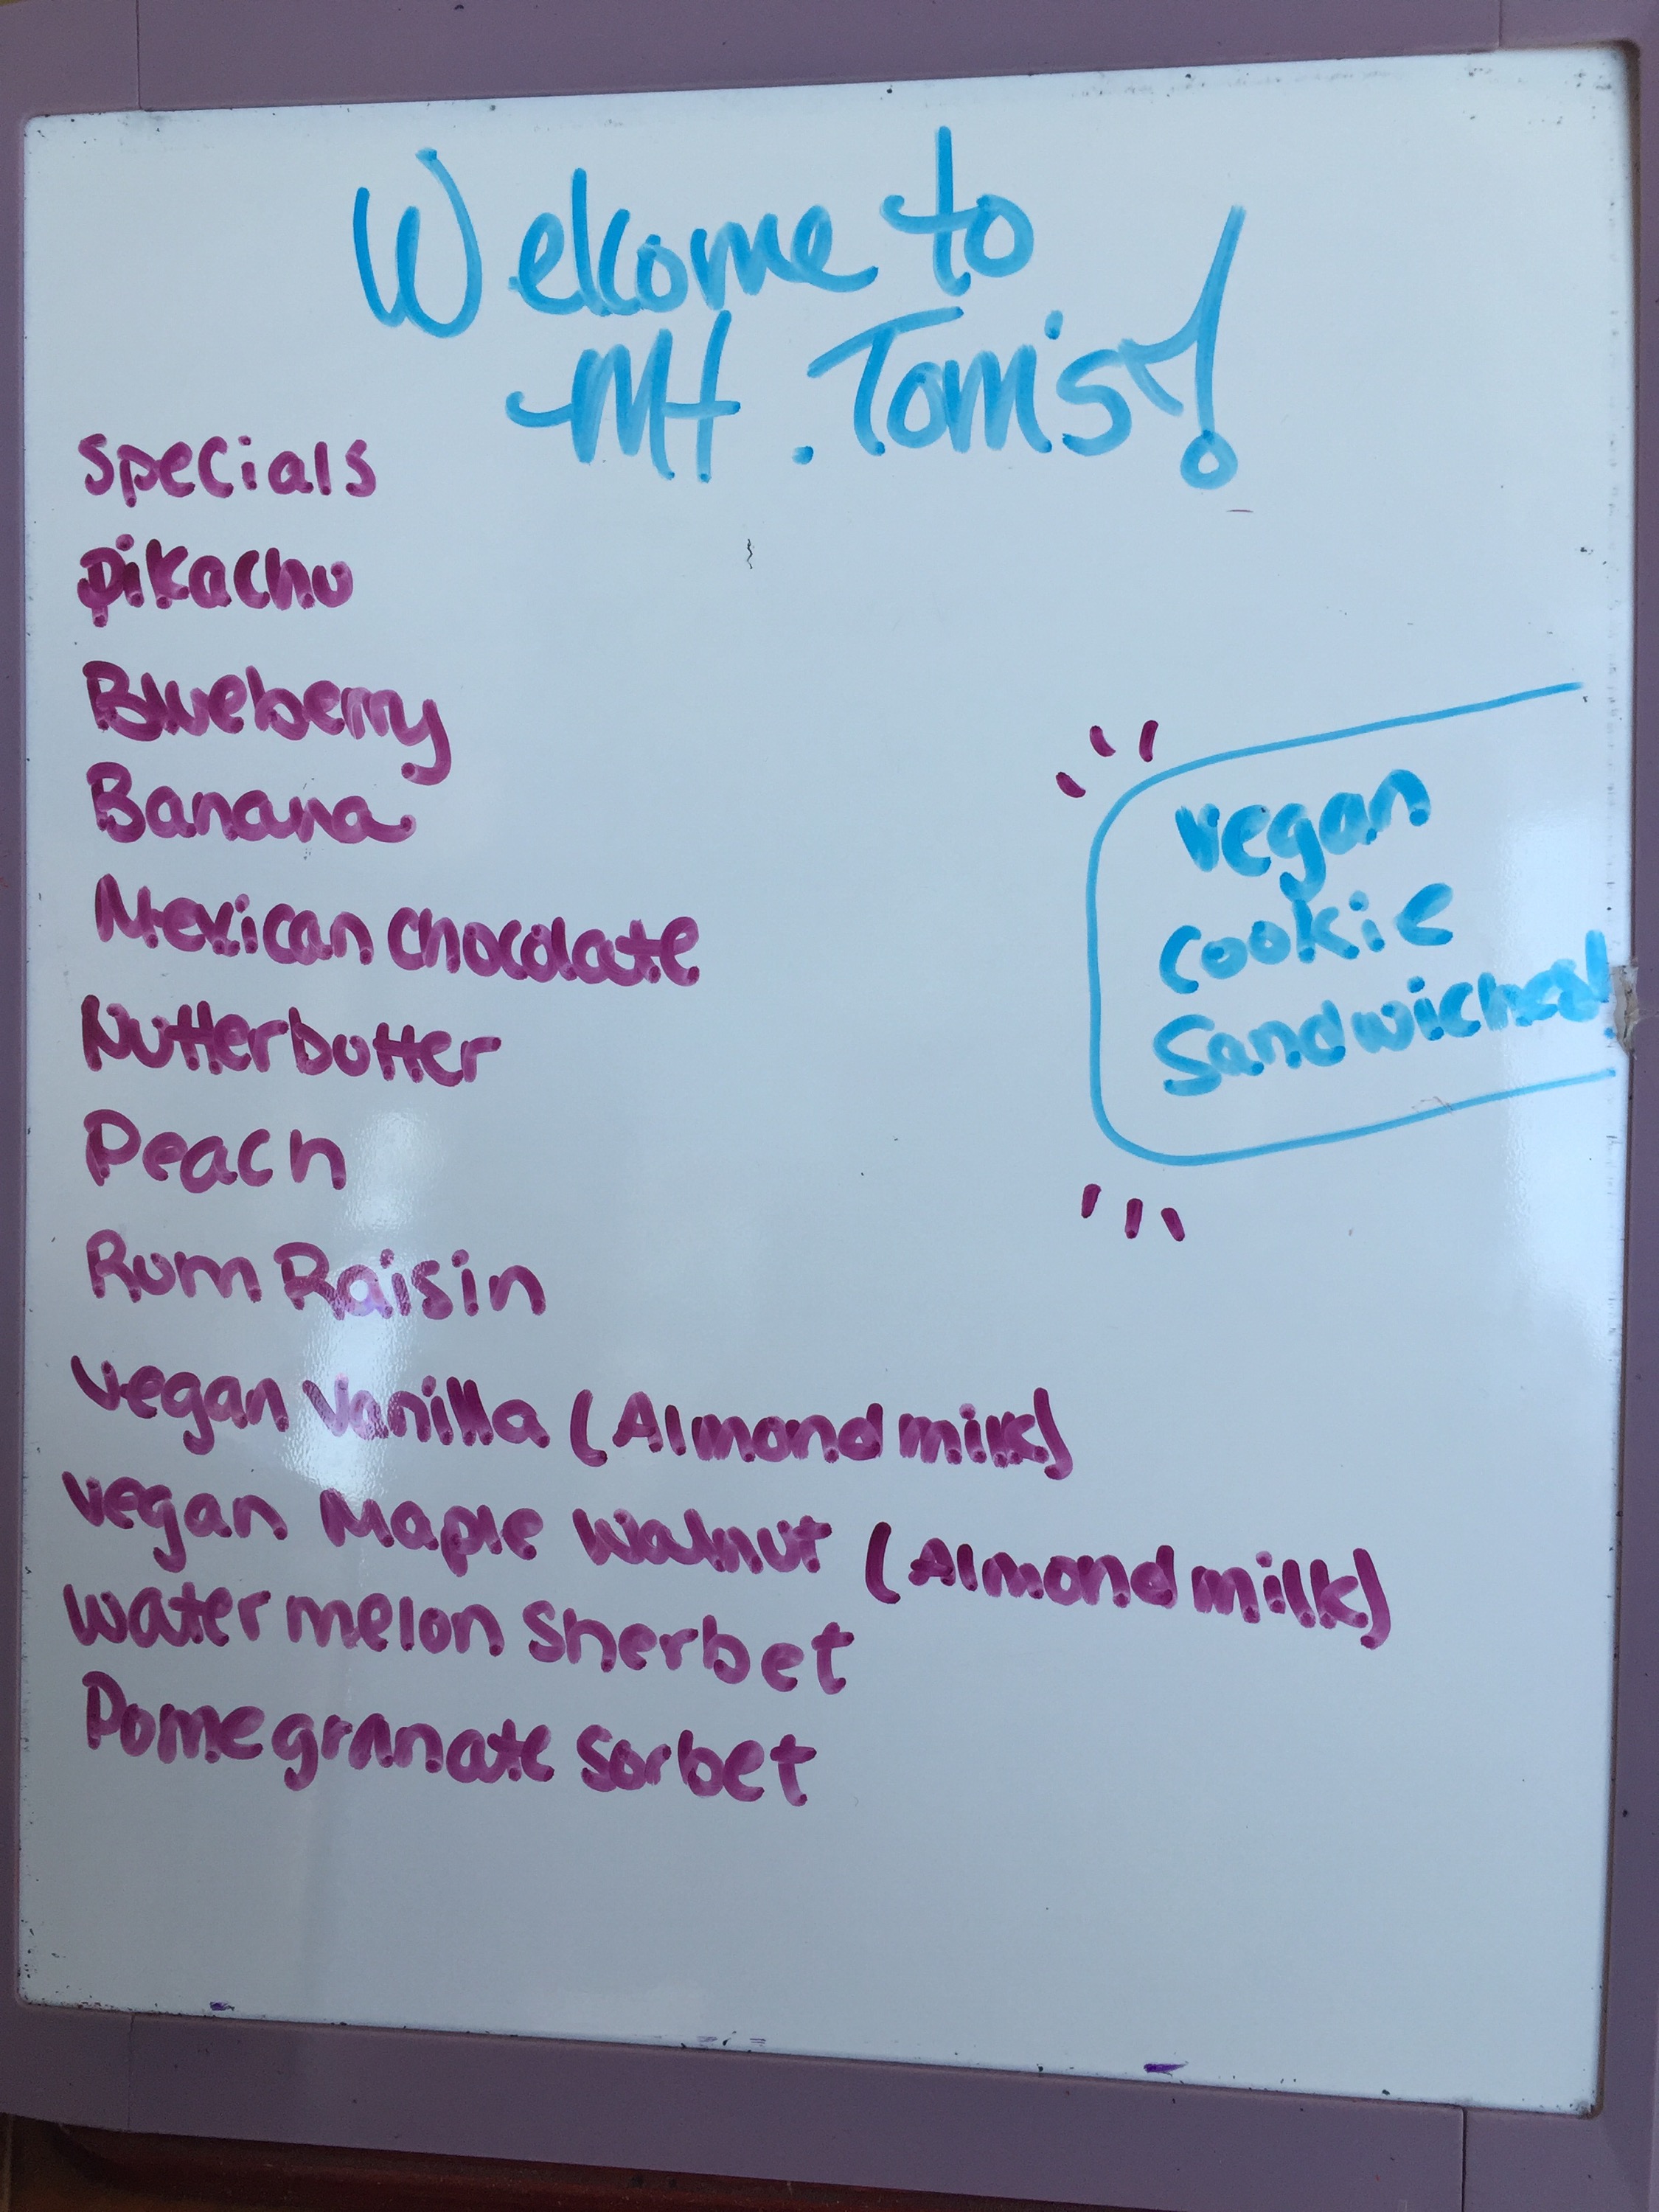 Welcome to
Mt. Tom's!
Specials
Pikachu
Blueberry
Banana
Mexican Chocolate
Nutterbutter
Peach
Rum Raisin
Vegan Vanilla (Almond milk)
Vegan Maple Walnut (Almond milk)
Watermelon Sherbet
Pomegranate Sorbet
Vegan
Cookie
Sandwiches!